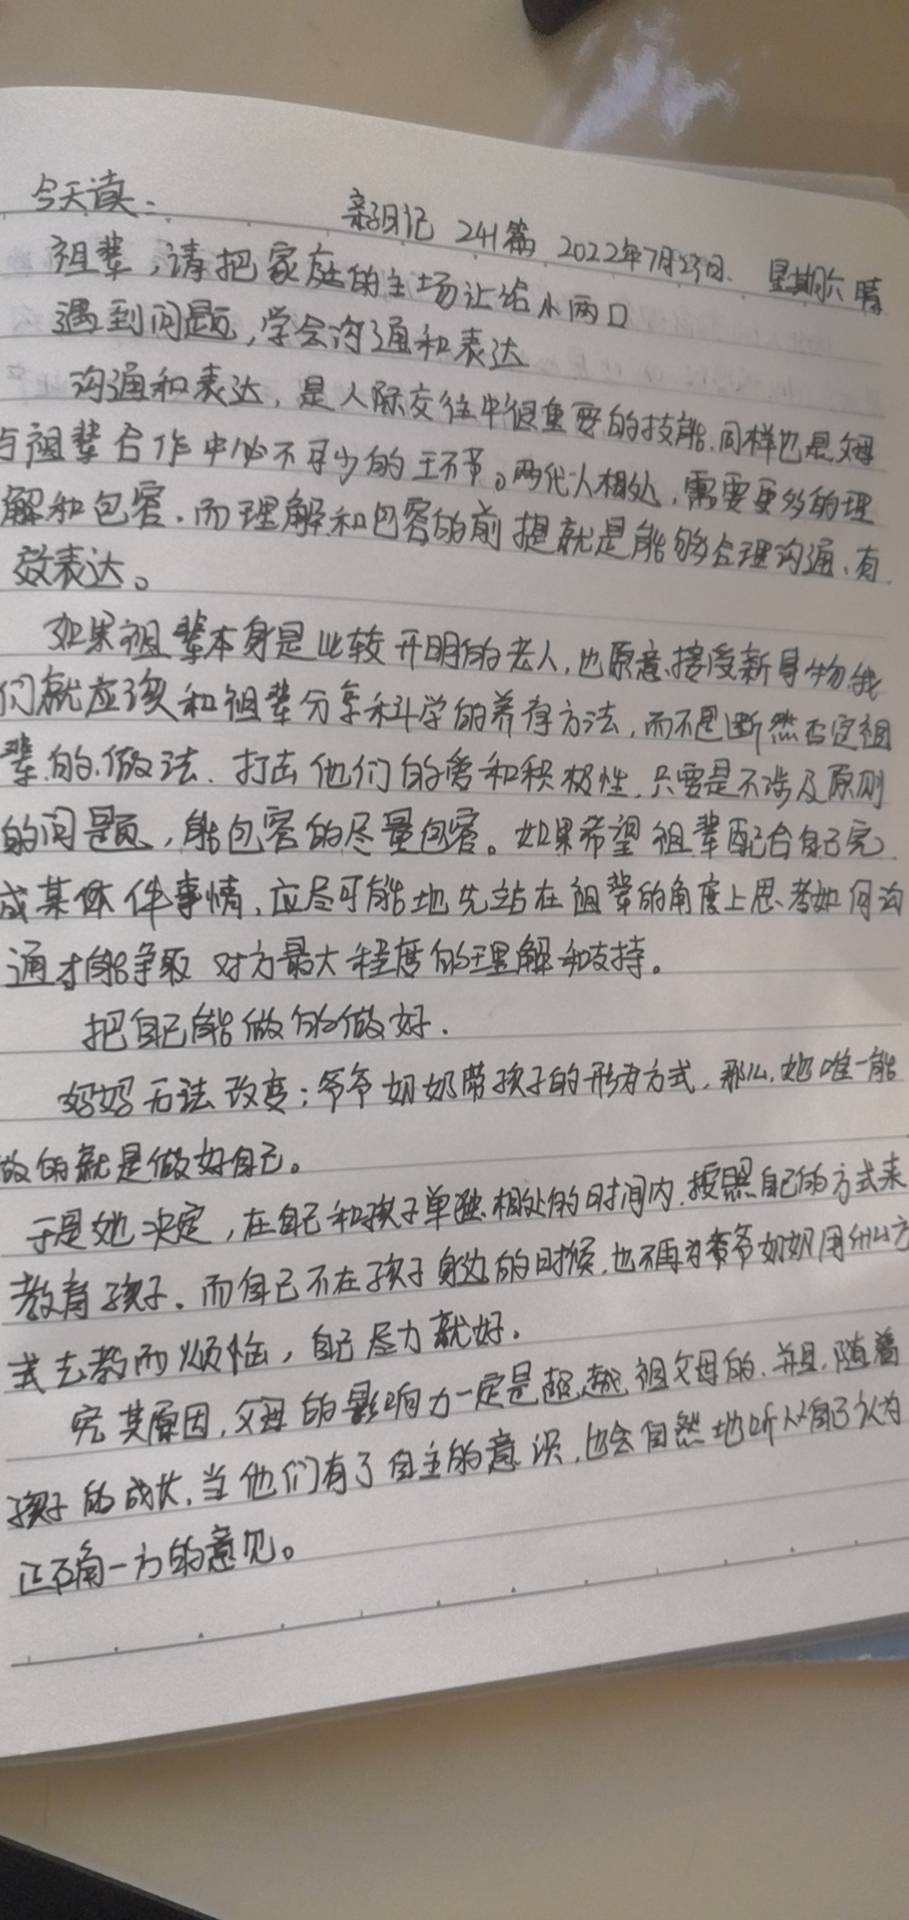 今天读：
亲子日记 241篇 2022年7月23日、星期六 晴
祖辈，请把家庭的主场让给小两口
遇到问题，学会沟通和表达
沟通和表达，是人际交往中很重要的技能.同样也是父母
与祖辈合作中必不可少的环节。两代人相处，需要更多的理
解和包容.而理解和包容的前提就是能够合理沟通、有
效表达。
如果祖辈本身是比较开明的老人,也愿意接受新事物我
们就应该和祖辈分享科学的养育方法,而不是断然否定祖
辈的做法.打击他们的爱和积极性.只要是不涉及原则
的问题，能包容的尽量包容。如果希望祖辈配合自己完
成某件事情,应尽可能地先站在祖辈的角度上思考如何沟
通才能争取对方最大程度的理解和支持。
把自己能做的做好.
妈妈无法改变；爷爷奶奶带孩子的形为方式，那么,她唯一能
做的就是做好自己。
于是她决定，在自己和孩子单独相处的时间内.按照自己的方式来
教育孩子.而自己不在孩子身边的时候.也不再为爷爷奶奶用什么方
式去教而烦恼，自己尽力就好.
究其原因,父母的影响力一定是超越祖父母的.并且,随着
孩子的成长.当他们有了自主的意识,也会自然地听从自己认为
正确一方的意见。